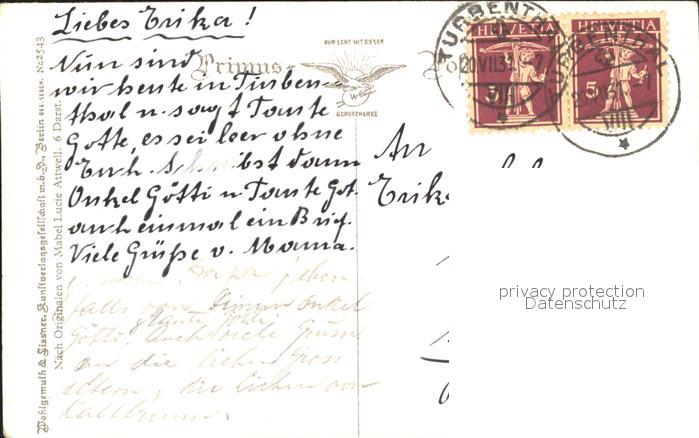 Liebes Erika!
Nun sind
wir heute in Turben-
thal u. sagt Tante
Gotte, es sei leer ohne
Euch. Schreibst dann
Onkel Götti u. Tante Got.
auch einmal ein Brief.
Viele Grüße v. Mama.
Papa eben
falls von Onkel
Götti. Auch viele Grüsse
an die lieben Gross
eltern, die lieben von
Kaltbrunn.
Primus-
NUR ECHT MIT DIESER
W
SCHUTZMARKE
Wohlgemuth & Lissner, Kunstverlagsgesellschaft m.b.H., Berlin No 2543
Nach Originalen von Mabel Lucie Attwell. 6 Darst.
HELVETIA
HELVETIA
5
TURBENTHAL
20.VII.31 7
VIII
TURBENTHAL
VIII
An
Erika
privacy protection
Datenschutz